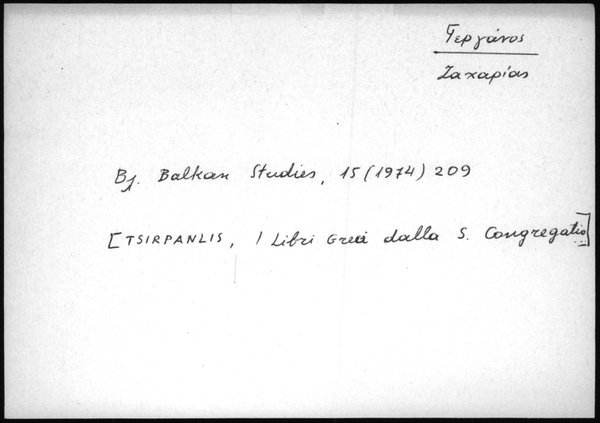 Γεργάνος
Ζαχαρίας
Βλ. Balkan Studies, 15 (1974) 209
[TSIRPANLIS, I Libri Greci dalla S. Congregatio]